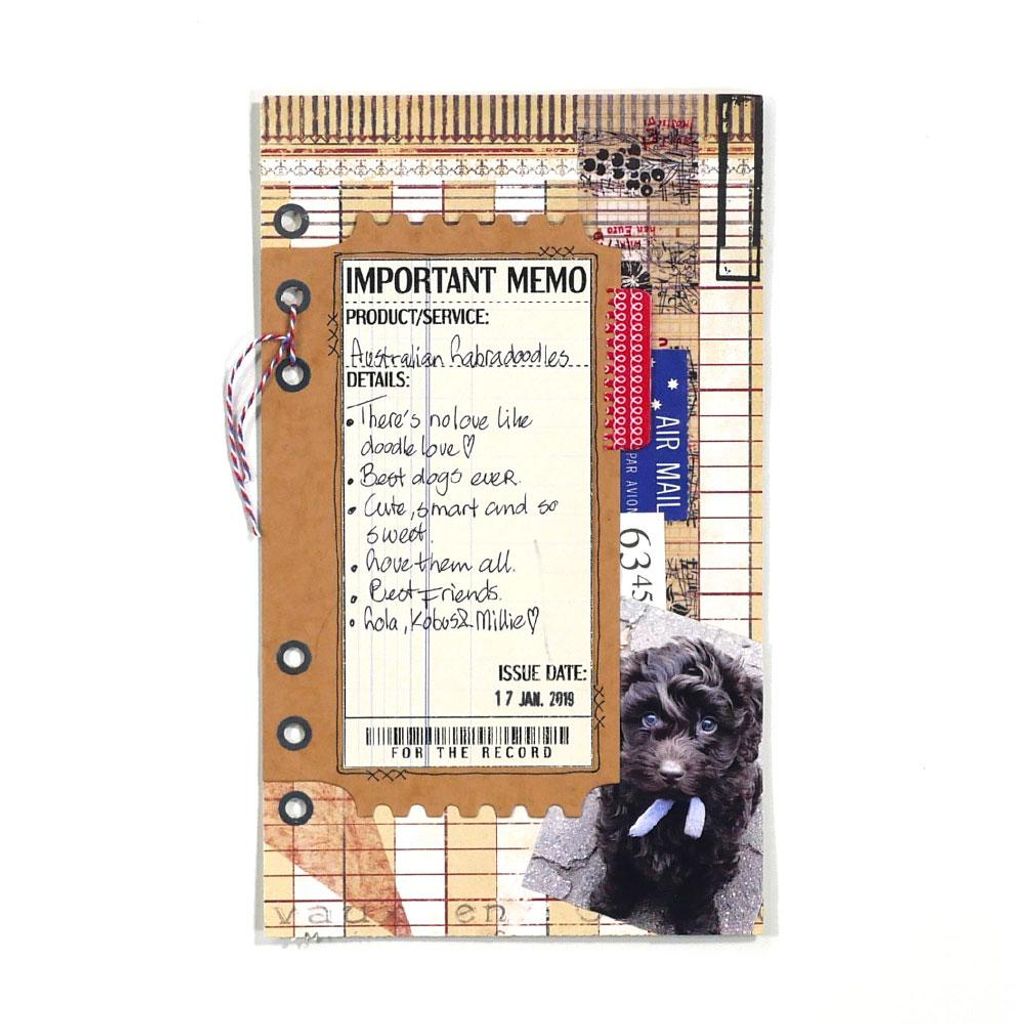 IMPORTANT MEMO
PRODUCT/SERVICE:
Australian Labradoodles
DETAILS:
• There's no love like
doodle love ♡
• Best dogs ever.
• Cute, smart and so
sweet.
• Love them all.
• Best Friends.
• Lola, Kobus & Millie ♡
ISSUE DATE:
17 JAN. 2019
FOR THE RECORD
AIR MAIL
PAR AVION
6345
en